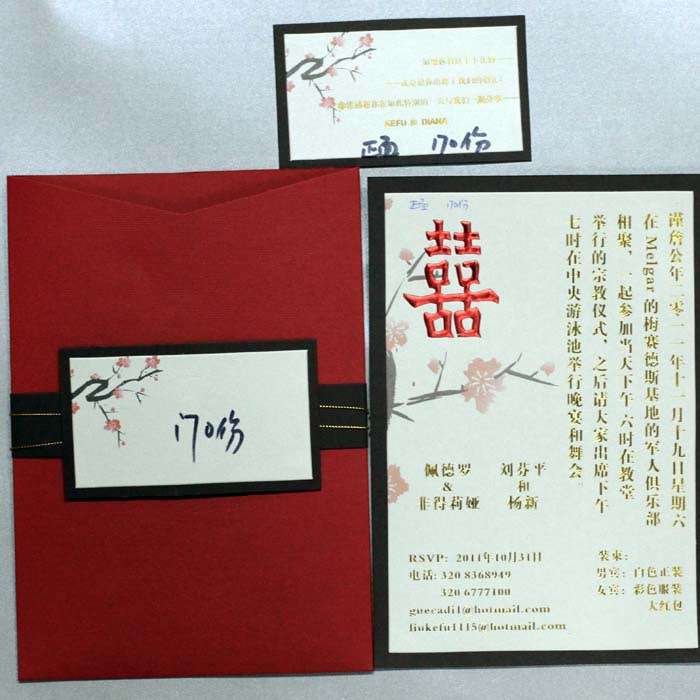 KEFU 和 DIANA
正面 170份
170份
170份
囍
谨詹公年二〇一一年十一月十九日星期六
在 Melgar 的梅赛德斯基地的军人俱乐部
相聚，一起参加当天下午六时在教堂
举行的宗教仪式，之后请大家出席下午
七时在中央游泳池举行晚宴和舞会。
佩德罗
&
菲得莉娅
刘芬平
和
杨新
RSVP: 2011年10月31日
电话: 320 8368949
320 6777100
guecadi1@hotmail.com
liukefu1115@hotmail.com
装束:
男宾: 白色正装
女宾: 彩色服装
大红包